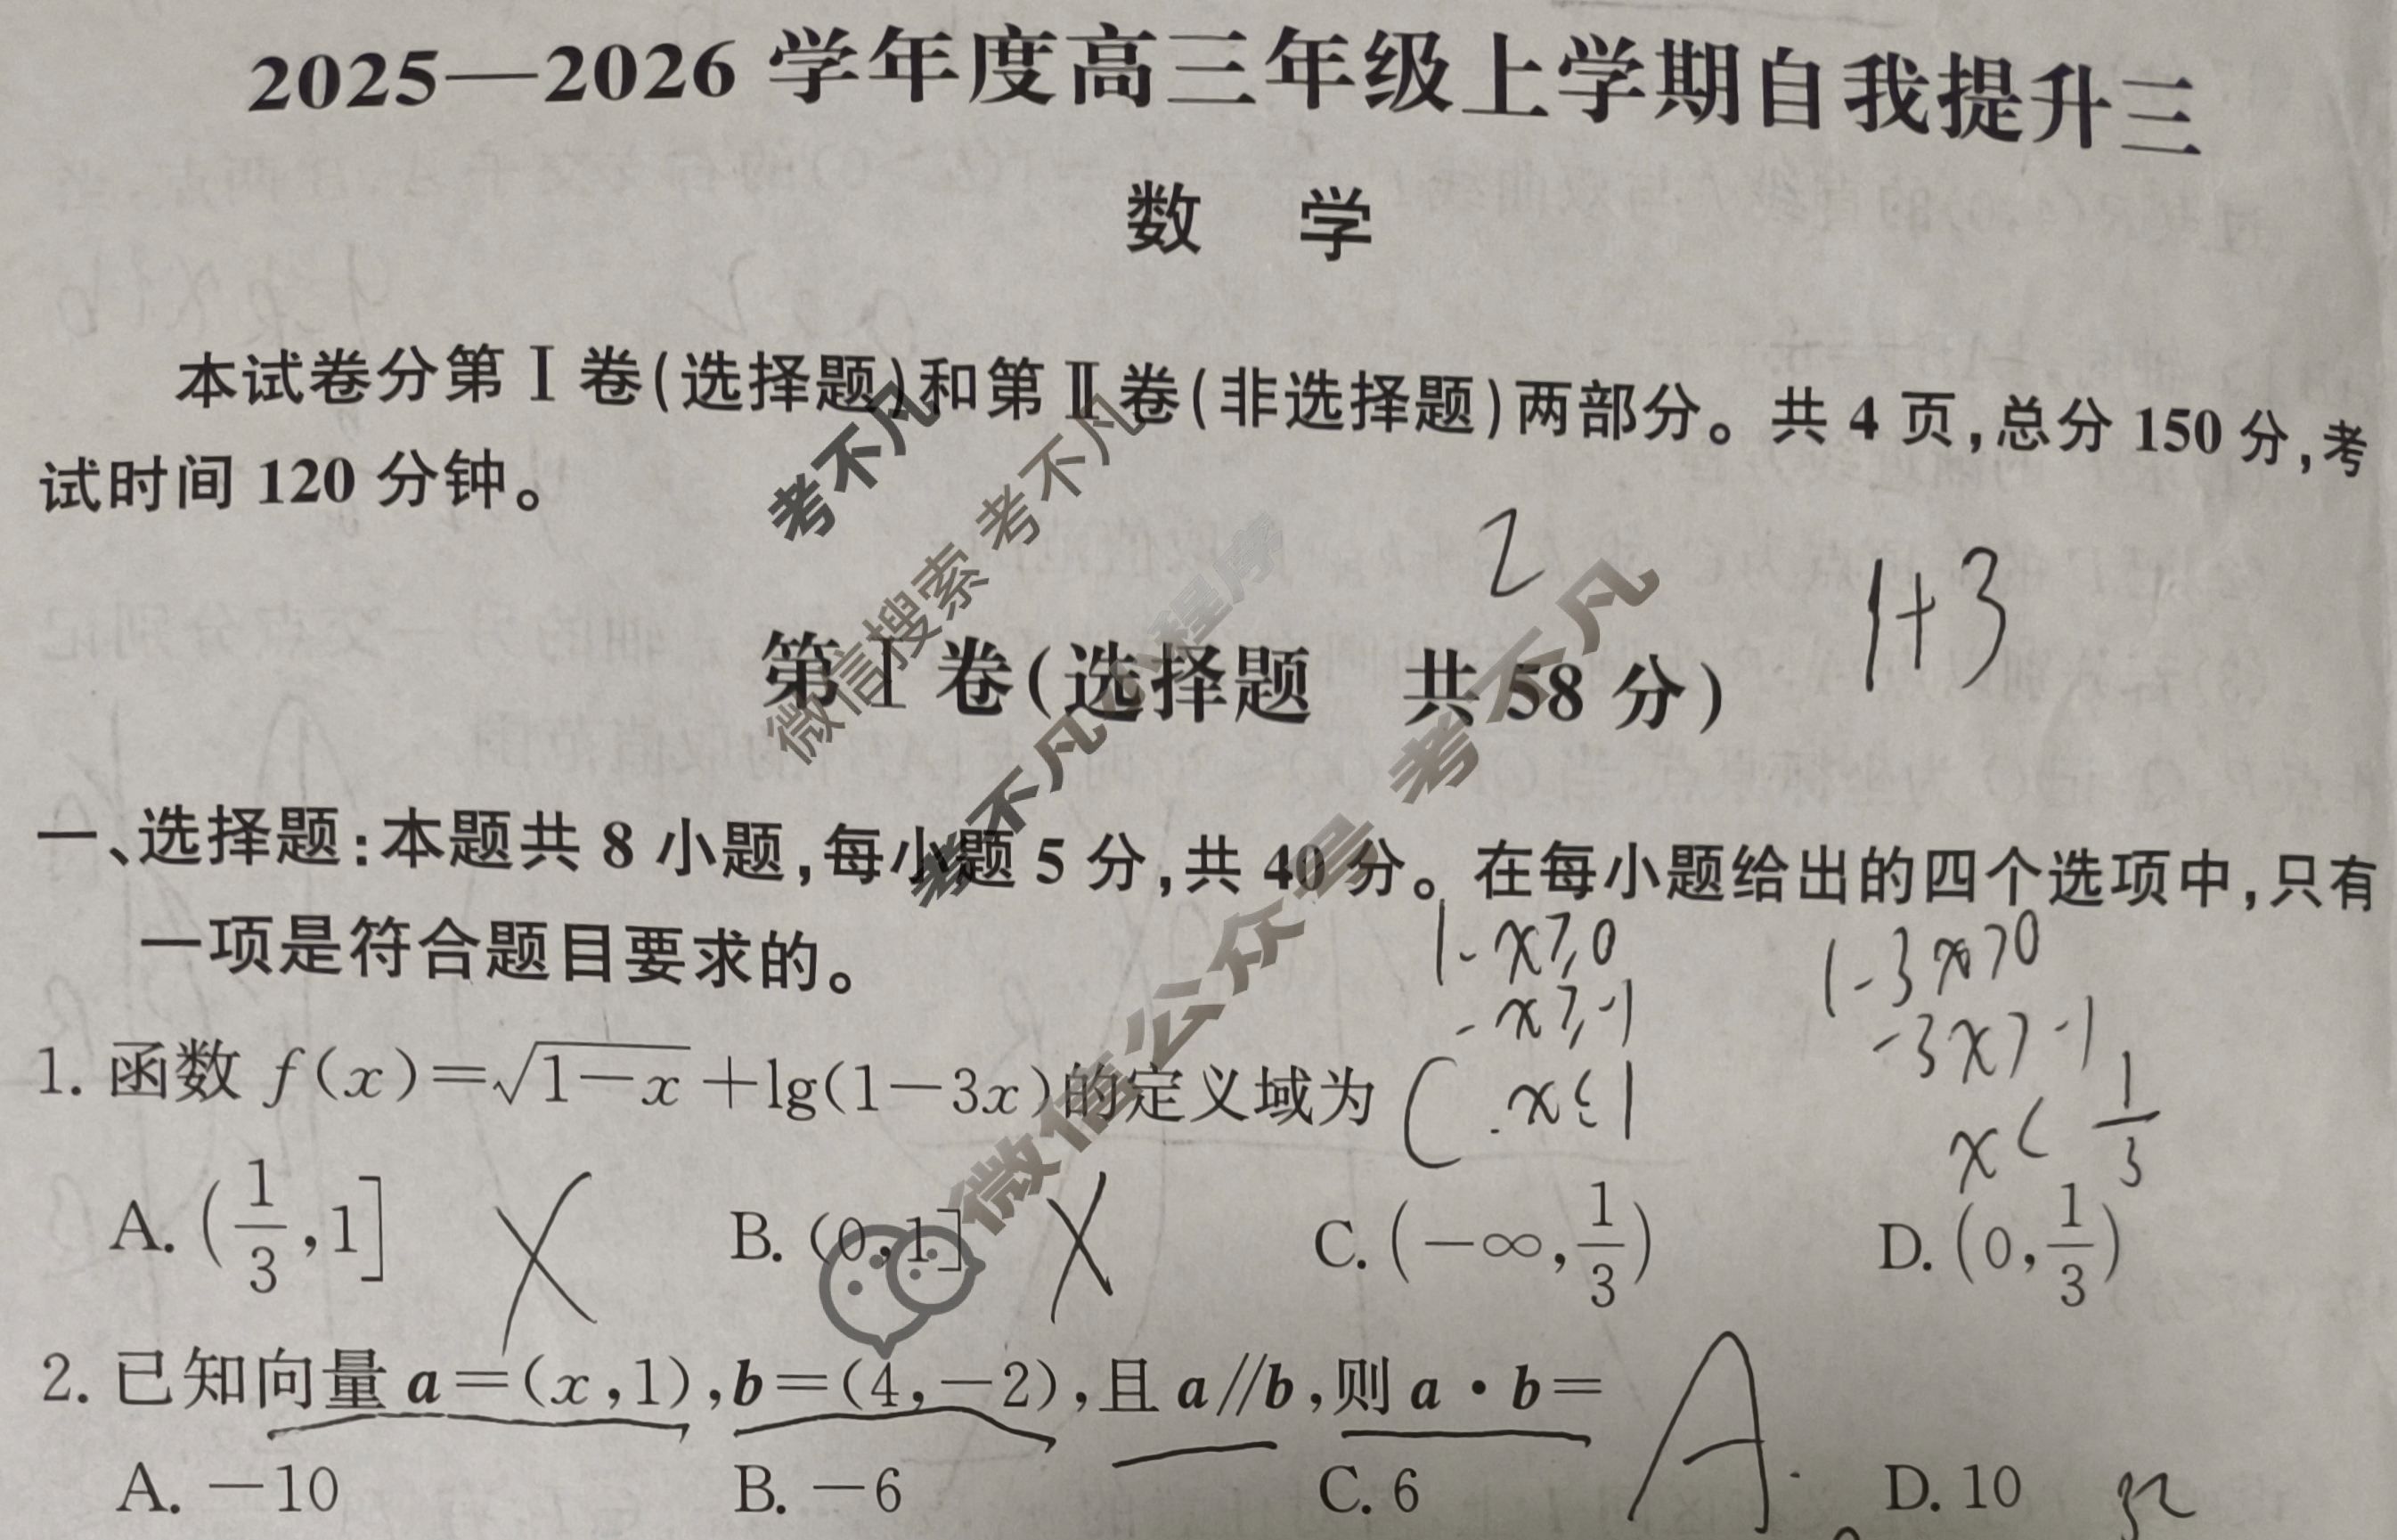 2025—2026 学年度高三年级上学期自我提升三
数 学
本试卷分第Ⅰ卷(选择题)和第Ⅱ卷(非选择题)两部分。共 4 页,总分 150 分,考
试时间 120 分钟。
考不凡
微信搜索 考不凡
考不凡 小程序
微信公众号 考不凡
2
1+3
第Ⅰ卷(选择题 共 58 分)
一、选择题:本题共 8 小题,每小题 5 分,共 40 分。在每小题给出的四个选项中,只有
一项是符合题目要求的。
1-x≥0
1-3x>0
-x≥-1
-3x>-1
1. 函数 f(x)=√(1-x)+lg(1-3x)的定义域为 C
x≤1
x<1/3
A. (1/3,1] B. (0,1] C. (-∞,1/3) D. (0,1/3)
2. 已知向量 a=(x,1),b=(4,-2),且 a∥b,则 a·b= A
A. -10 B. -6 C. 6 D. 10